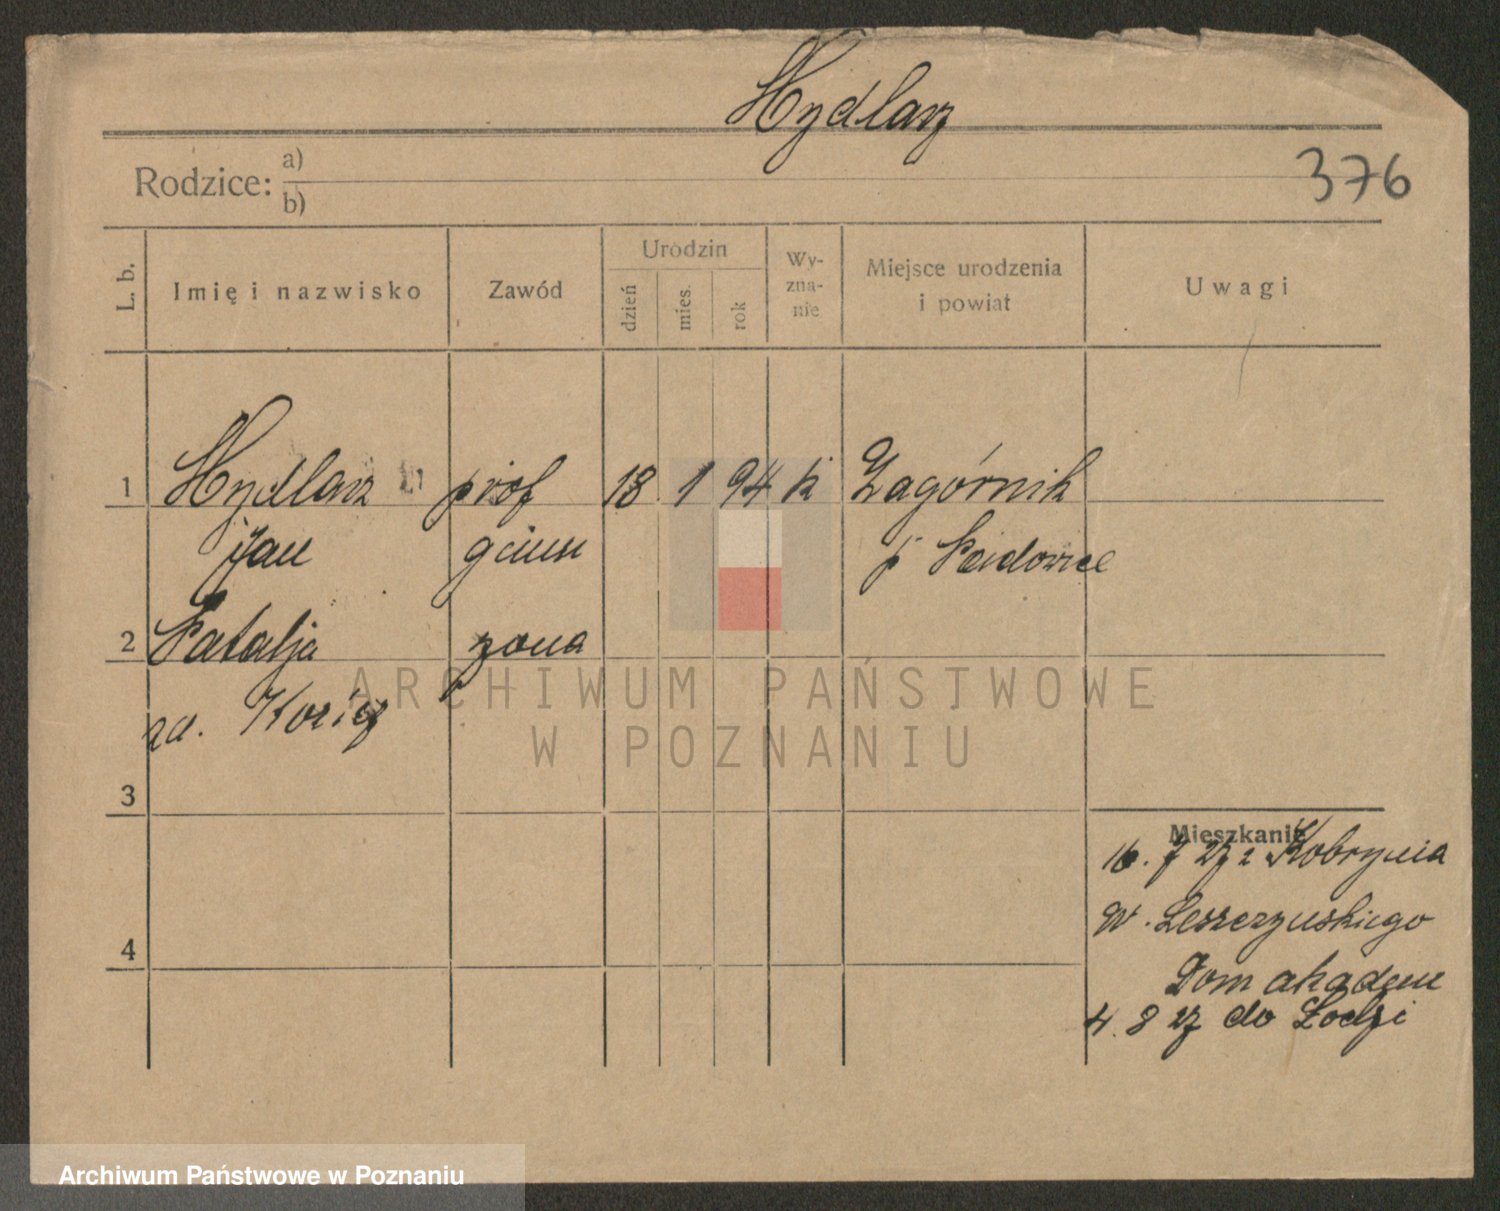 Hydlarz
Rodzice: a)
b)
376
L. b.
Imię i nazwisko
Zawód
Urodzin
dzień
mies.
rok
Wy-
zna-
nie
Miejsce urodzenia
i powiat
Uwagi
1 Hydlarz prof 18 1 94 k Zagórnik
Jan gimn p.
2 Natalja żona
zd.
3
4
Mieszkanie
16. 7 27 z Kobrynia
W. Leszczyńskiego
Dom akadem
4. 8 27 do Łodzi
ARCHIWUM PAŃSTWOWE
W POZNANIU
Archiwum Państwowe w Poznaniu